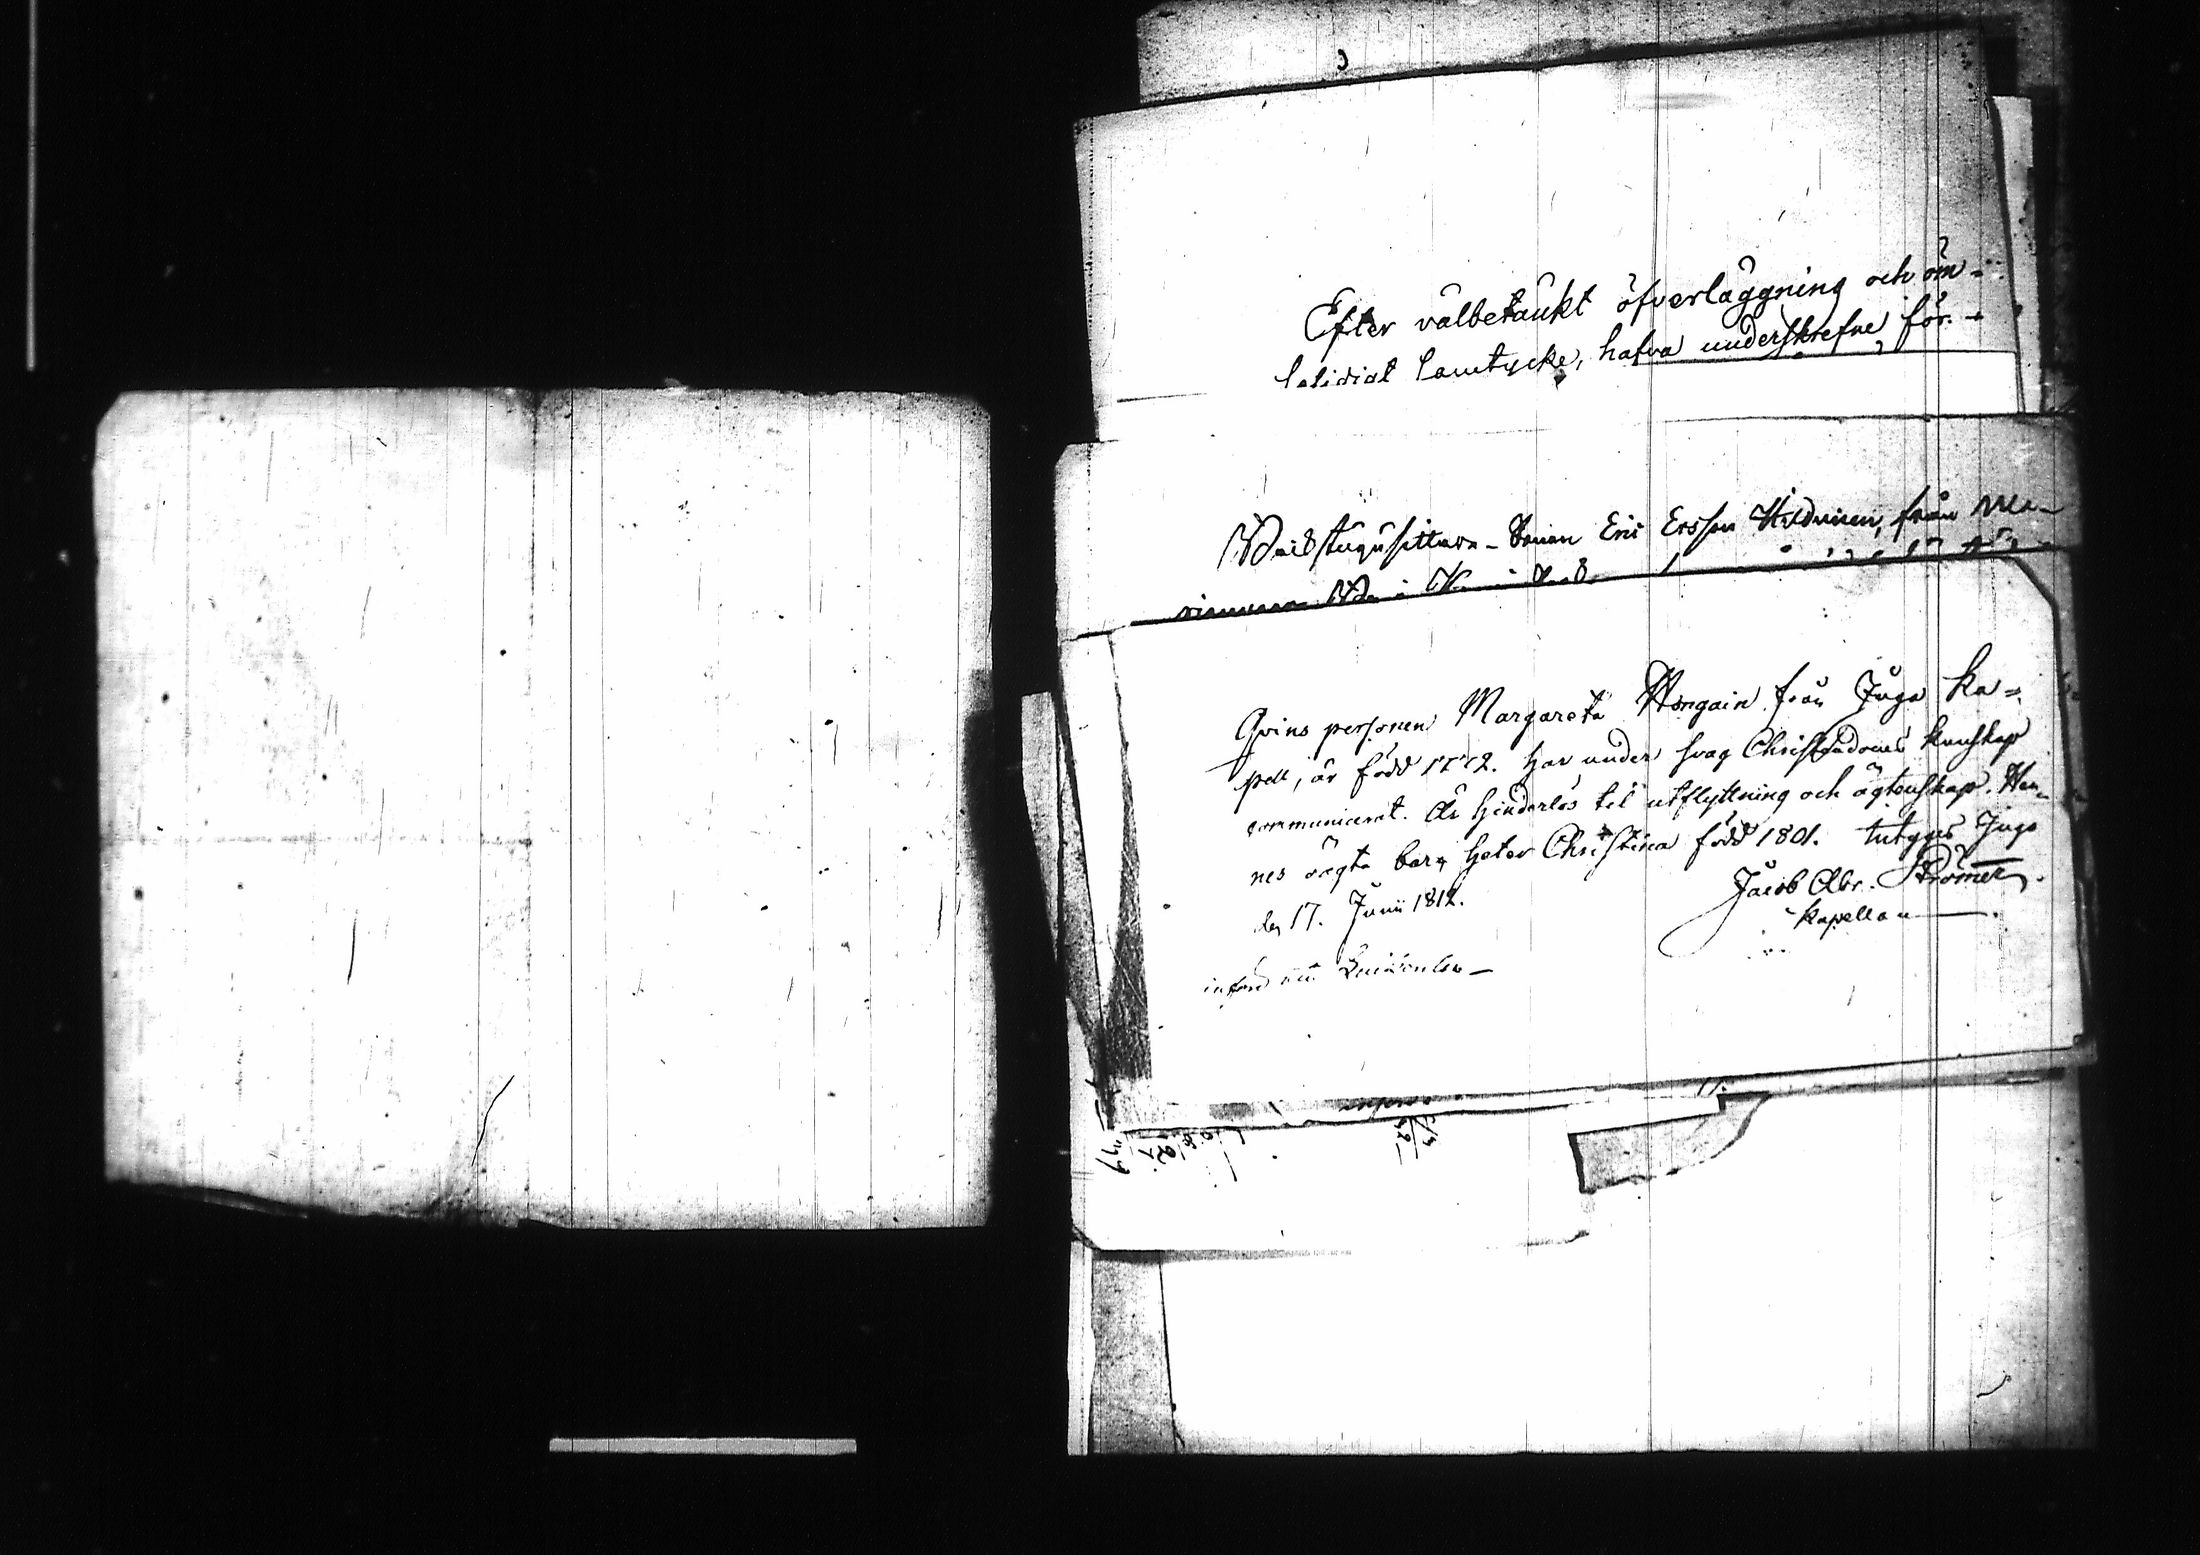 Efter välbetänkt öfverläggning och öm-
sesidigt samtycke, hafva underskrefne för-
Backstugusittare-Sonen Eric Ersson Hildunen, från
Qvins personen Margareta Hongain från Juga Ka=
pell, är född 1772. Har under svag Christendoms kunskap
communicerat. Är hinderlös til utflyttning och ägtenskap. Hen-
nes oägta barn heter Christina född 1801. betygas Juga
den 17. Junii 1812.
Jacob Abr. Strömer
kapellan